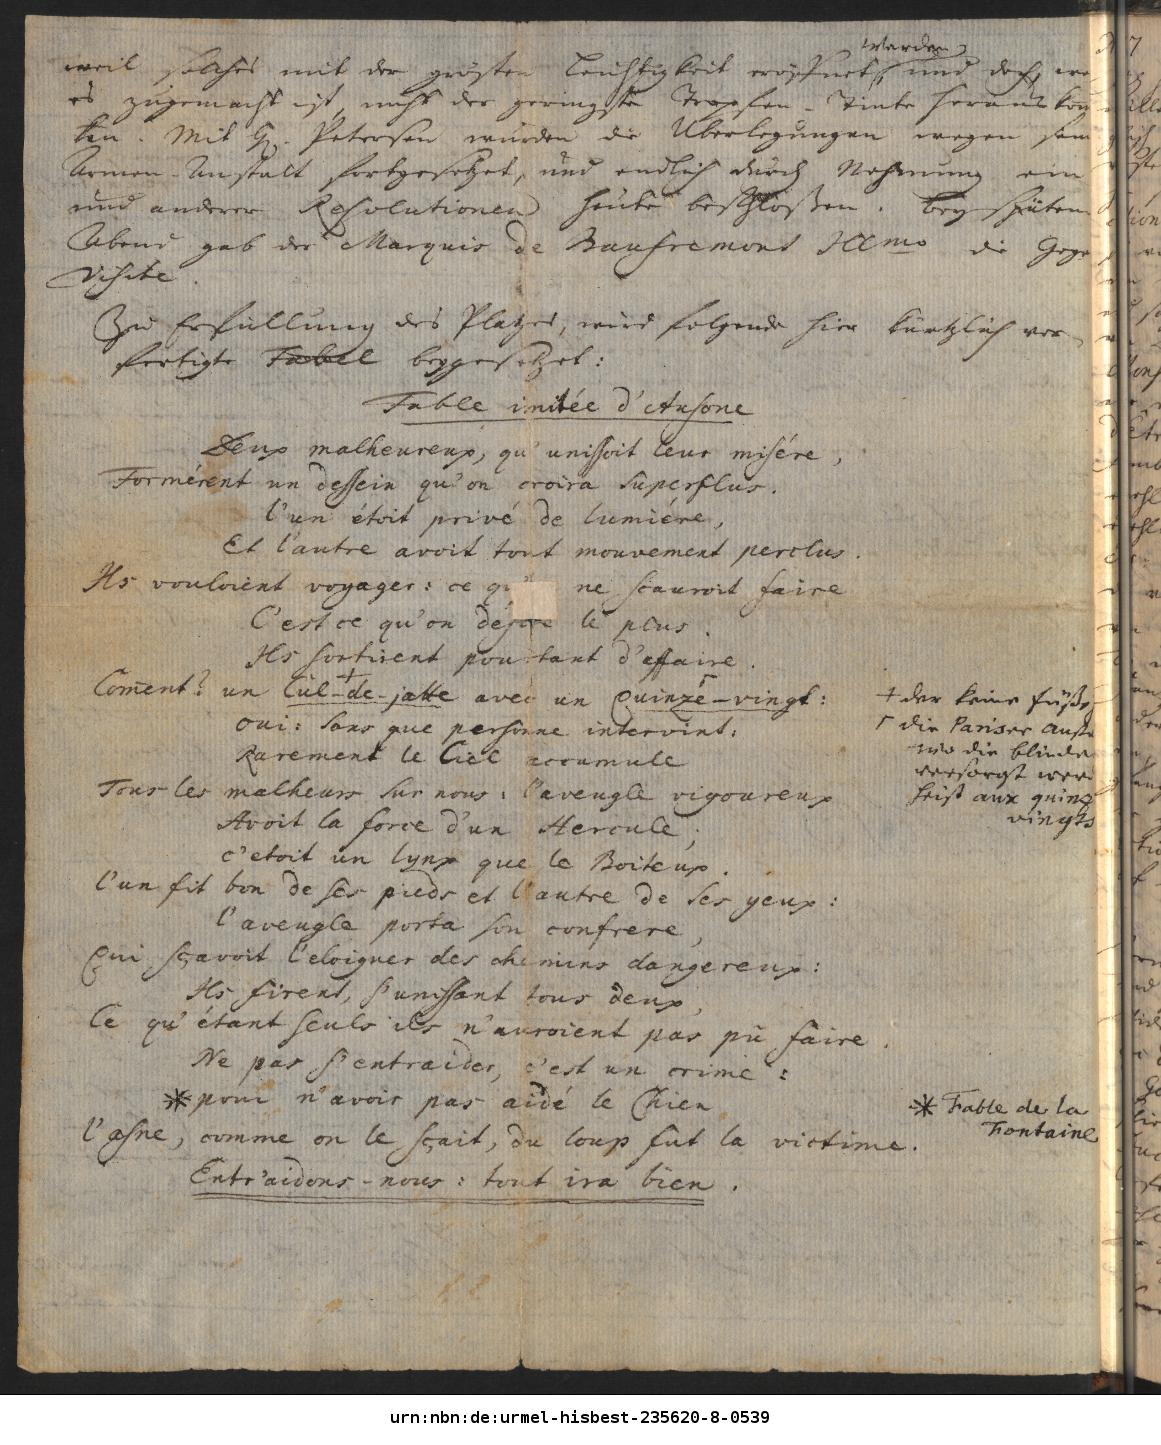 werden
weil solches mit der grösten Leichtigkeit eröffnet, und doch, we
es zugemacht ist, nicht der geringste Tropfen Tinte heraus kon
ten. Mit H. Petersen wurden die Überlegungen wegen
Armen-Anstalt fortgesetzet, und endlich durch Nehmung ein
und anderer Resolutionen heute beschloßen. bey spätem
Abend gab der Marquis de Baufremont Illmo die Gege
visite.
Zu Erfüllung des Platzes, wird folgende hier kürtzlich ver
fertigte Fabel beygesetzet:
Fable imitée d'Ausone
Deux malheureux, qu'unissoit leur misére,
Formérent un dessein qu'on croira superflus.
l'un étoit privé de lumiére,
Et l'autre avoit tout mouvement perclus.
Ils vouloient voyager: ce qu' ne sçauroit faire
C'est ce qu'on désire le plus.
Ils sortirent pourtant d'affaire.
Com̄ent? un Cul-de-jatte avec un Quinze-vingt:
oui: sans que personne intervint:
Rarement le Ciel accumule
Tous les malheurs sur nous: l'aveugle vigoureux
Avoit la force d'un Hercule;
c'etoit un lynx que le Boiteux.
l'un fit bon de ses pieds et l'autre de ses yeux:
l'aveugle porta son confrere,
Qui sçavoit l'eloigner des chemins dangereux:
Ils firent, s'unissant tous deux,
Ce qu'étant seuls ils n'auroient pas pû faire.
Ne pas s'entraider, c'est un crime:
* pour n'avoir pas aidé le Chien
l'asne, comme on le sçait, du loup fut la victime.
Entr'aidons-nous: tout ira bien.
+ der keine füß
Γ die Pariser
wo die blinde
versorgt wer
heist aux quinz
vingts
* Fable de la
Fontaine
urn:nbn:de:urmel-hisbest-235620-8-0539